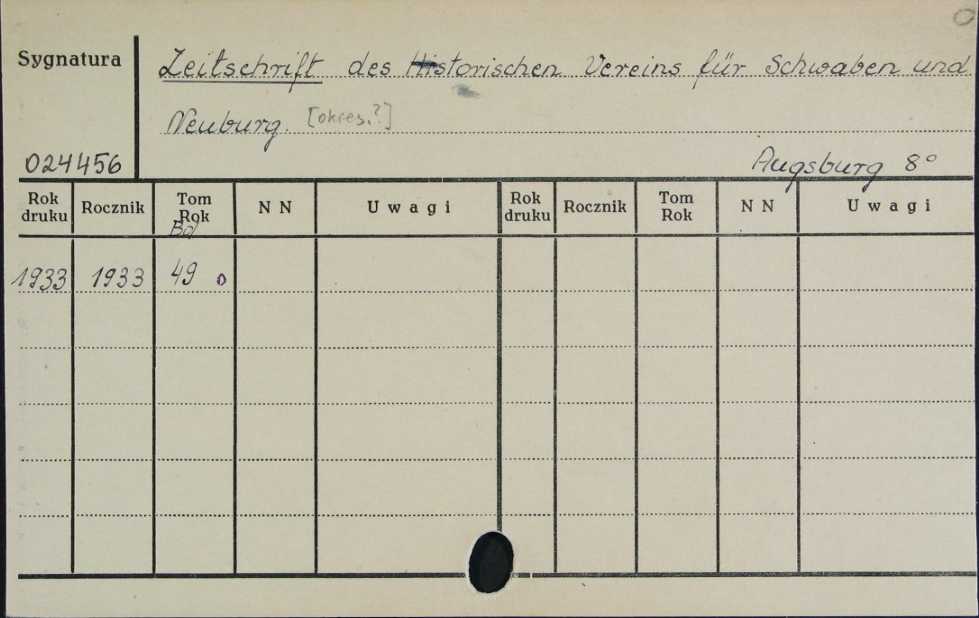 Sygnatura
Zeitschrift des Historischen Vereins für Schwaben und
Neuburg. [okres.?]
024456
Augsburg 8°
Rok druku Rocznik Tom Rok N N Uwagi Rok druku Rocznik Tom Rok N N Uwagi
Bd
1933 1933 49